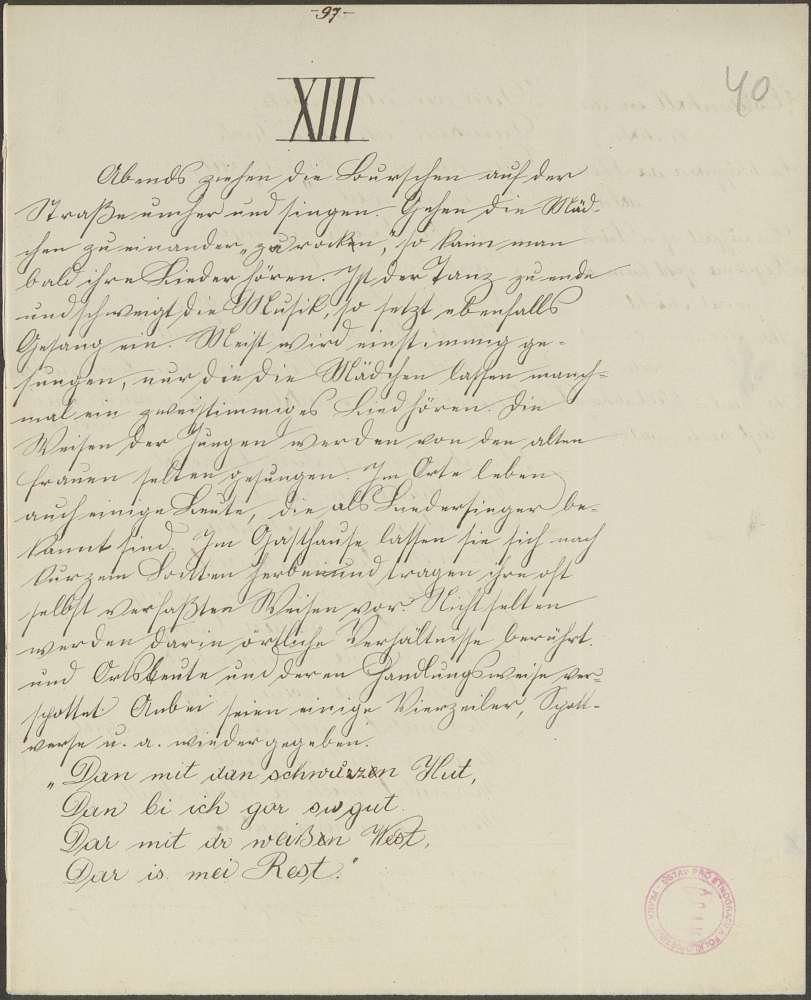 -97-
40
XIII
Abends ziehen die Burschen auf der
Straße umher und singen. Gehen die Mäd-
chen zu einander „zu rocken," so kann man
bald ihre Lieder hören. Ist der Tanz zu ende
und schweigt die Musik, so setzt ebenfalls
Gesang ein. Meist wird einstimmig ge-
sungen, nur die die Mädchen lassen manch-
mal ein zweistimmiges Lied hören. Die
Weisen der Jungen werden von den alten
Frauen selten gesungen. Im Orte leben
auch einige Leute, die als Liedersinger be-
kannt sind. Im Gasthause lassen sie sich nach
kurzem Bitten herbei und tragen ihre oft
selbst verfaßten Weisen vor. Nicht selten
werden darin örtliche Verhältnisse berührt
und Ortsleute und deren Handlungsweise ver-
spottet. Anbei seien einige Vierzeiler, Spott-
verse u. a. wiedergegeben.
„Dan mit dan schwarzen Hut,
Dan bi ich gor su gut.
Dar mit dr weißen West,
Dar is mei Rest."
ÚSTAV PRO ETNOGRAFII A FOLKLORISTIKU · PRAHA